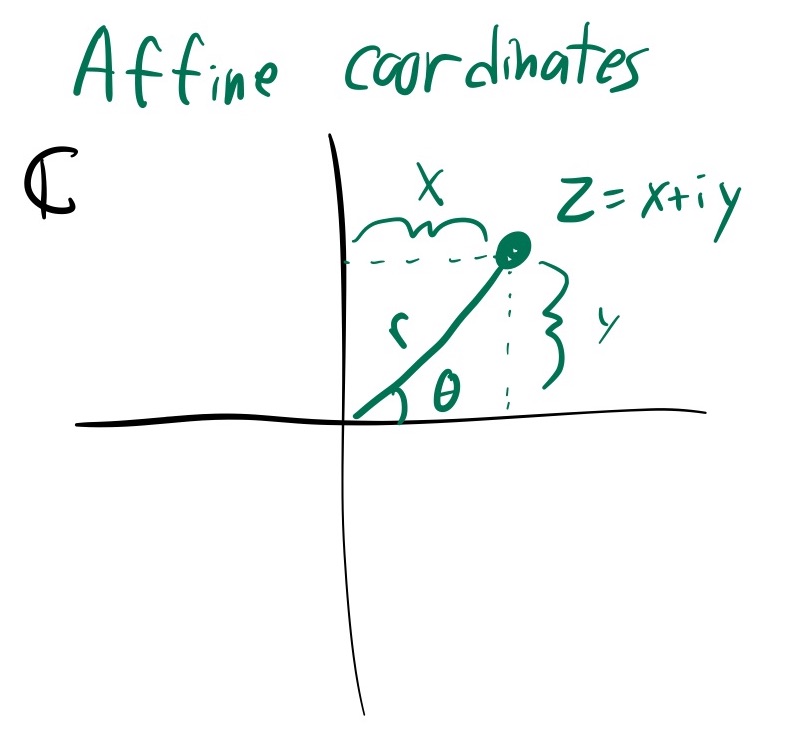 Affine coordinates
ℂ
x
z = x+iy
r
θ
y